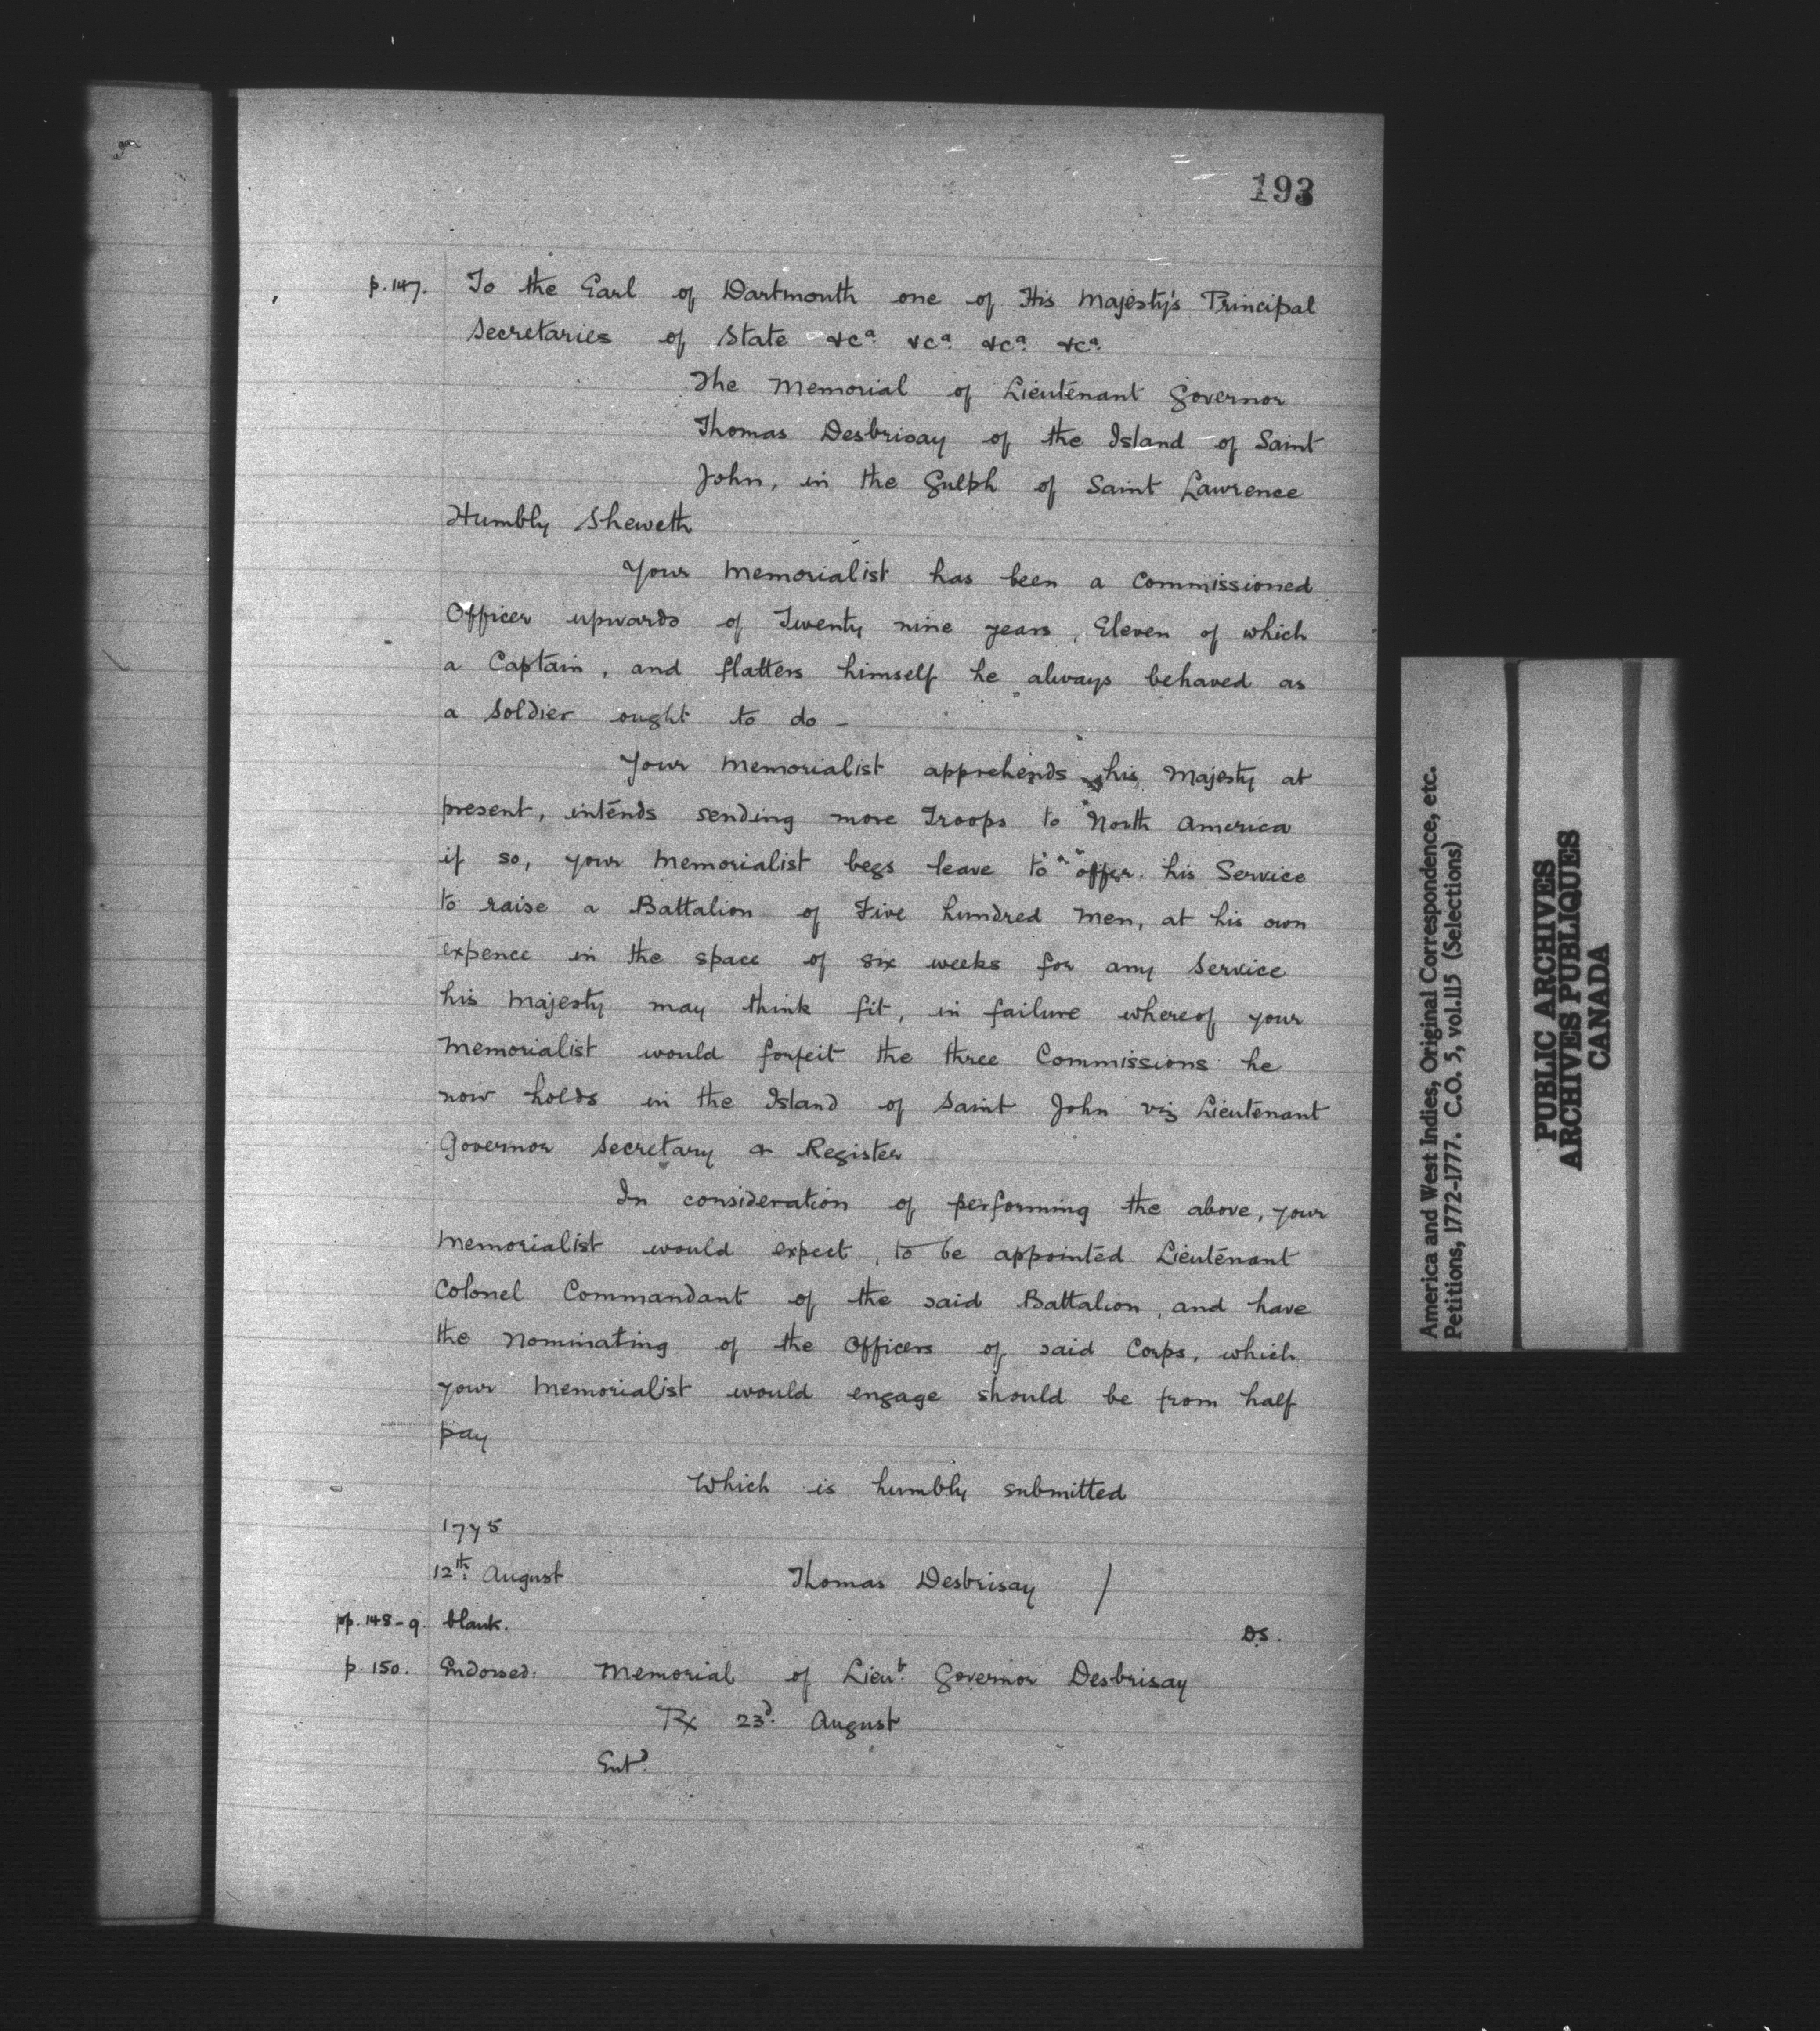 193
p. 147. To the Earl of Dartmouth one of His Majesty's Principal
Secretaries of State &cª &cª &cª &cª
The Memorial of Lieutenant Governor
Thomas Desbrisay of the Island of Saint
John, in the Gulph of Saint Lawrence
Humbly Sheweth
Your Memorialist has been a Commissioned
Officer upwards of Twenty nine years, Eleven of which
a Captain, and flatters himself he always behaved as
a Soldier ought to do –
Your Memorialist apprehends his Majesty at
present, intends sending more Troops to North America
if so, your Memorialist begs leave to offer his Service
to raise a Battalion of Five hundred Men, at his own
expence in the space of six weeks for any Service
his Majesty may think fit, in failure whereof your
Memorialist would forfeit the three Commissions he
now holds in the Island of Saint John viz Lieutenant
Governor Secretary & Register
In consideration of performing the above, your
Memorialist would expect, to be appointed Lieutenant
Colonel Commandant of the said Battalion, and have
the nominating of the Officers of said Corps, which
your Memorialist would engage should be from half
pay
Which is humbly submitted
1775
12th August Thomas Desbrisay /
pp. 148-9. blank.
DS.
p. 150. Endorsed: Memorial of Lieut Governor Desbrisay
Rx 23d August
Entd
America and West Indies, Original Correspondence, etc.
Petitions, 1772-1777. C.O. 5, vol.115 (Selections)
PUBLIC ARCHIVES
ARCHIVES PUBLIQUES
CANADA